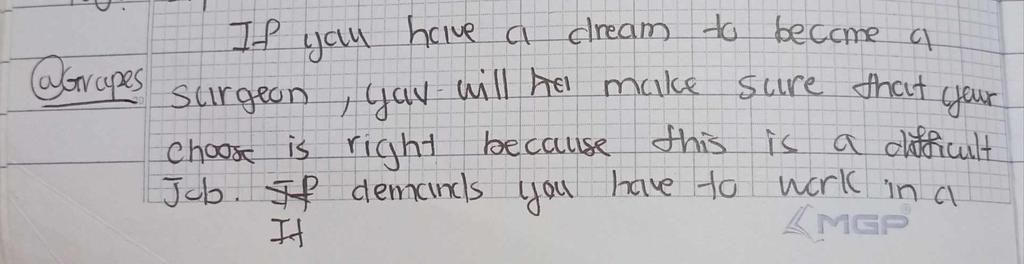 If you have a dream to become a
@Grapes
surgeon, you will make sure that your
choose is right because this is a difficult
Job. If demands you have to work in a
It
MGP